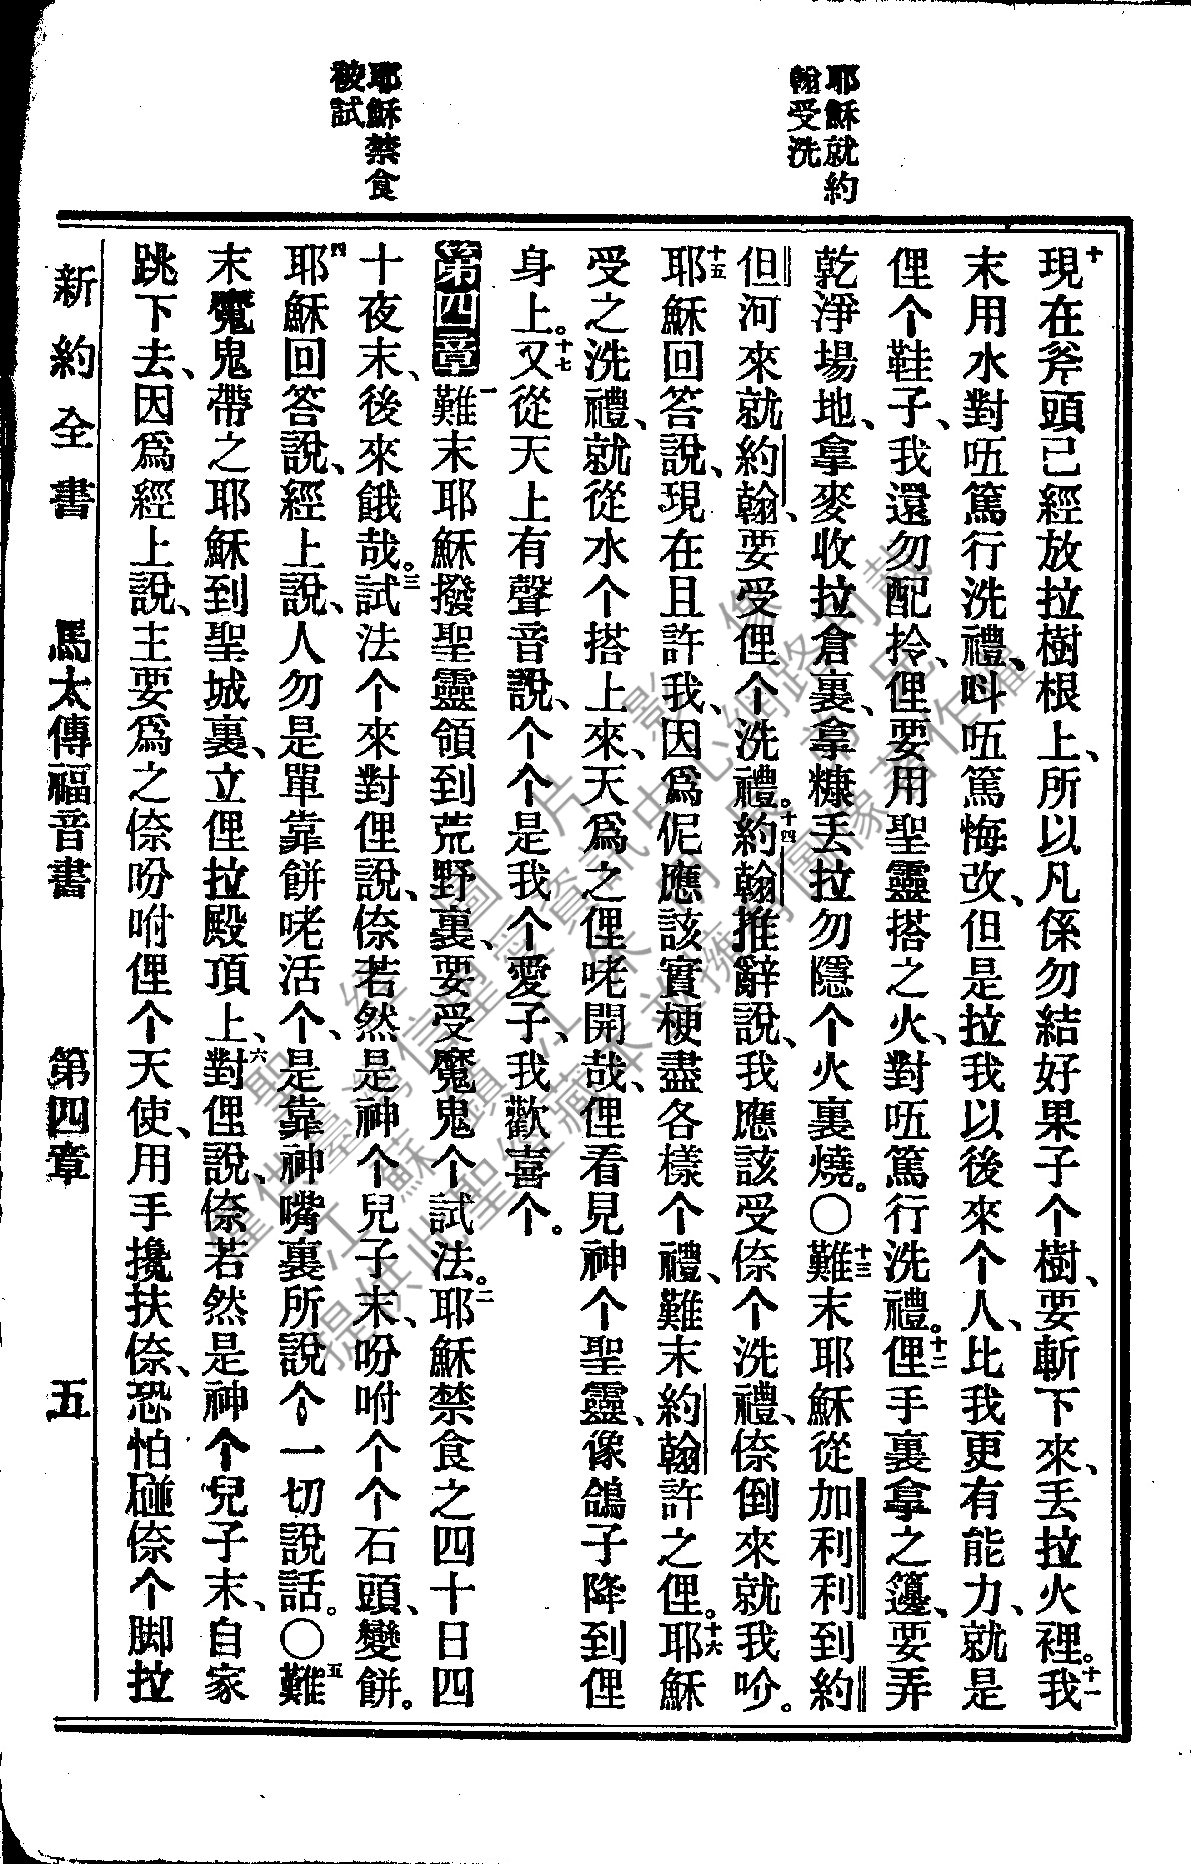 耶穌就約
翰受洗
耶穌禁食
被試
十現在斧頭已經放拉樹根上、所以凡係勿結好果子个樹、要斬下來、丢拉火裡。十一我
末用水對㕶篤行洗禮、呌㕶篤悔改、但是拉我以後來个人、比我更有能力、就是
俚个鞋子、我還勿配拎、俚要用聖靈搭之火、對㕶篤行洗禮。十二俚手裏拿之籩、要弄
乾淨場地、拿麥收拉倉裏、拿糠丢拉勿隱个火裏燒。〇十三難末耶穌從加利利到約
但河來就約翰、要受俚个洗禮。十四約翰推辭說、我應該受倷个洗禮、倷倒來就我吤。
十五耶穌回答說、現在且許我、因爲伲應該實梗盡各樣个禮、難末約翰許之俚。十六耶穌
受之洗禮、就從水个搭上來、天爲之俚咾開哉、俚看見神个聖靈、像鴿子降到俚
身上。十七又從天上有聲音說、个个是我个愛子、我歡喜个。
第四章 一難末耶穌撥聖靈領到荒野裏、要受魔鬼个試法。二耶穌禁食之四十日四
十夜末、後來餓哉。三試法个來對俚說、倷若然是神个兒子末、吩咐个个石頭、變餅。
四耶穌回答說、經上說、人勿是單靠餅咾活个、是靠神嘴裏所說个一切說話。〇五難
末魔鬼帶之耶穌到聖城裏、立俚拉殿頂上、六對俚說、倷若然是神个兒子末、自家
跳下去、因爲經上說、主要爲之倷吩咐俚个天使、用手攙扶倷、恐怕碰倷个脚拉
新約全書 馬太傳福音書 第四章 五
聖經圖片影像
僅供臺灣信望愛資訊中心網路刊載